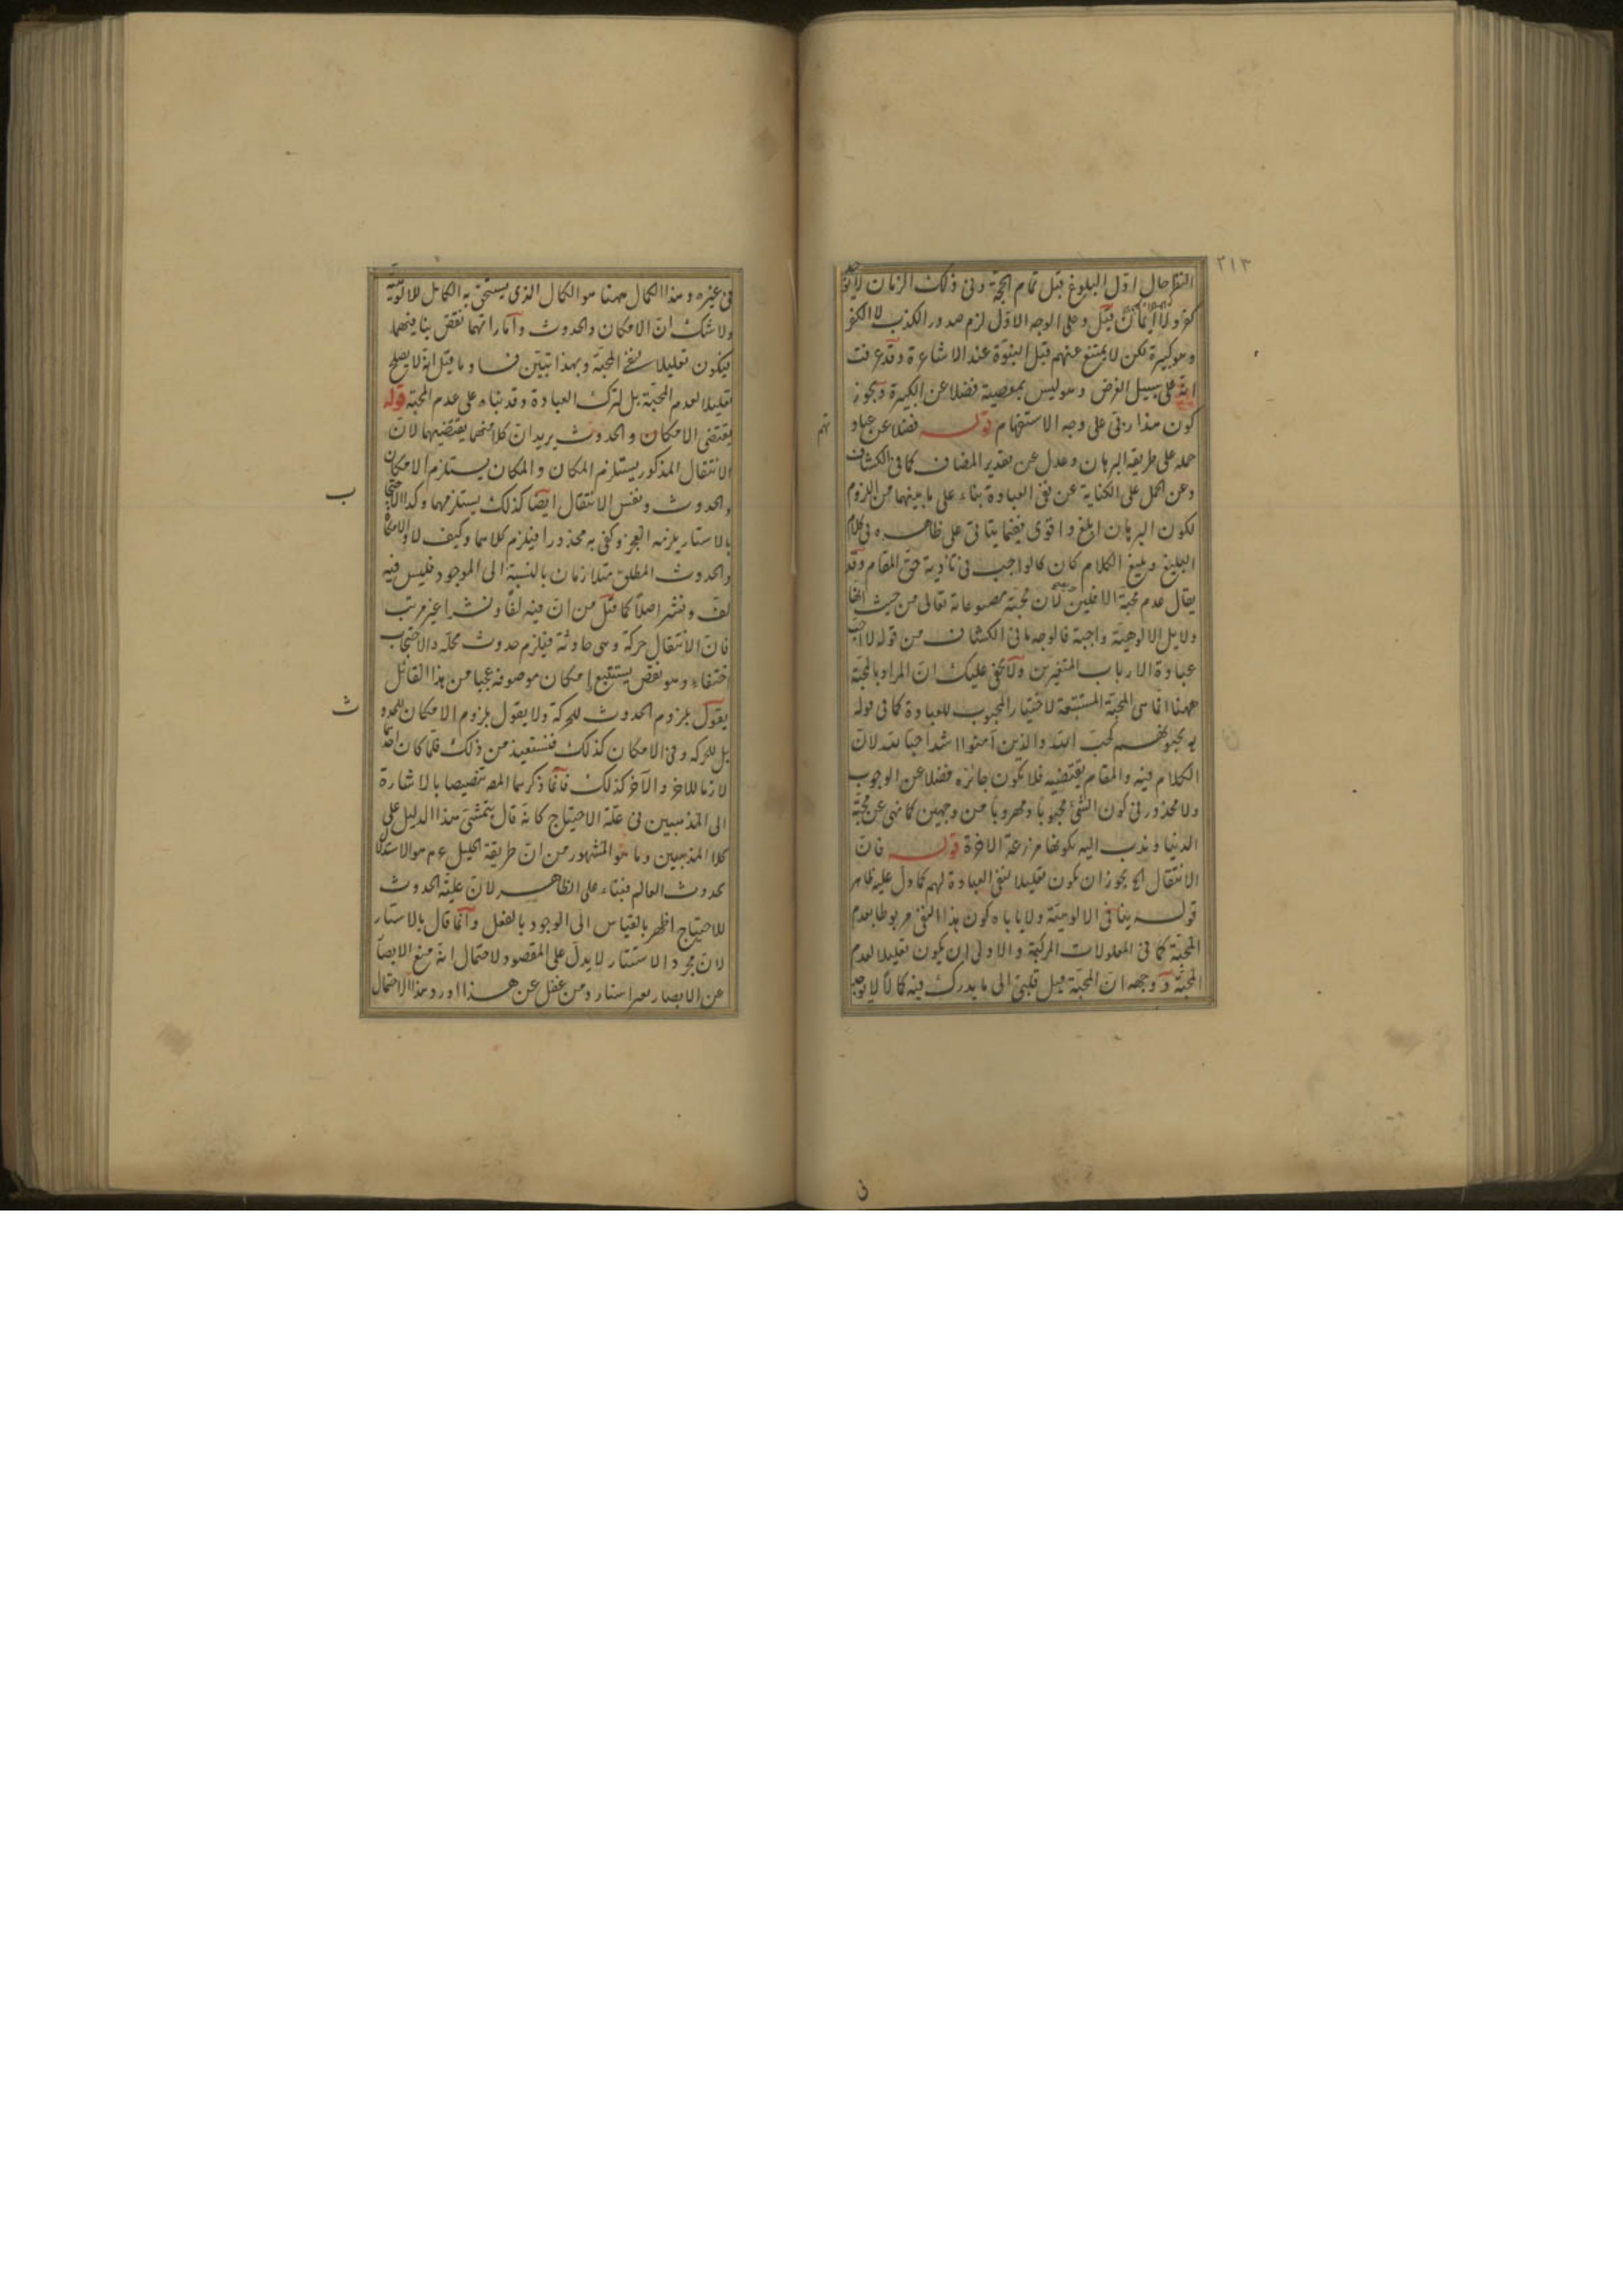 ٢١٣
النظر حال اول البلوغ قبل تمام الحجة وفى ذلك الزمان لا يوجد
كفر ولا ايمان قيل وعلى الوجه الاول لزم صدور الكذب لا الكفر
وهو كبيرة لكن لا يمتنع عنهم قبل النبوة عند الاشاعرة وقد عرفت
انه على سبيل الفرض وهو ليس بمعصية فضلا عن الكبيرة ويجوز
كون هذا ربى على وجه الاستفهام قوله فضلا عن عباد
تهم
حمله على طريقة البرهان وعدل عن تقدير المضاف كما فى الكشاف
وعن الحمل على الكناية عن نفى العبادة بناء على ما بينهما من اللزوم
لكون البرهان ابلغ واقوى فيما يتأتى على ظاهره فى كلام
البليغ وبليغ الكلام كان كالواجب فى تادية حق المقام وقد
يقال عدم محبة الافلين لان محبة مصنوعاته تعالى من حيث انها
دلايل الالوهية واجبة فالوجه ما فى الكشاف من قوله لا احب
عبادة الارباب المتغيرين ولا يخفى عليك ان المراد بالمحبة
ههنا انما هى المحبة المستتبعة لاختيار المحبوب للعبادة كما فى قوله
يحبونهم كحب الله والذين آمنوا اشد حبا لله لان
الكلام فيه والمقام يقتضيه فلا يكون جائزه فضلا عن الوجوب
ولا محذور فى كون الشئ محبوبا ومهروبا من وجهين كما نهى عن محبة
الدنيا وندب اليه لكونها مزرعة الاخرة قوله فان
الانتقال الخ يجوز ان يكون تعليلا لنفى العبادة لهم كما دل عليه ظاهر
قوله ينافى الالوهية ولا ياباه كون هذا النفى مربوطا بعدم
المحبة كما فى المعلولات المركبة والاولى ان يكون تعليلا لعدم
المحبة ووجهه ان المحبة ميل قلبى الى ما يدرك فيه كمالا لا يوجد
فى غيره وهذا الكمال ههنا هو الكمال الذى يستحق به الكامل للالوهية
ولا شك ان الامكان والحدوث وآماراتهما نقص ينافيهما
فيكون تعليلا لنفى المحبة وبهذا تبين فساد ما قيل انه لا يصلح
تعليلا لعدم المحبة بل لترك العبادة وقد بناه على عدم المحبة قوله
يقتضى الامكان والحدوث يريد ان كلا منهما يقتضيهما لان
الانتقال المذكور يستلزم المكان والمكان يستلزم الامكان
والحدوث ونفس الانتقال ايضا كذلك يستلزمهما وكذا الاحتجا
ب
بالاستار يلزمه العجز وكفى به محذورا فيلزم كلاهما وكيف لا والامكان
والحدوث المطلق متلازمان بالنسبة الى الموجود فليس فيه
لف ونشر اصلا كما قيل من ان فيه لفا ونشرا غير مرتب
فان الانتقال حركة وهى حادثة فيلزم حدوث محله والاحتجاب
اختفاء وهو نقص يستتبع امكان موصوفه عجبا من هذا القائل
يقول بلزوم الحدوث للحركة ولا يقول بلزوم الامكان للحدو
ث
بل للحركة وفى الامكان كذلك فنستعيذ من ذلك فلما كان احدهما
لازما للاخر والآخر كذلك فانما ذكرهما المص تنصيصا بالاشارة
الى المذهبين فى علة الاحتياج كانه قال يتمشى هذا الدليل على
كلا المذهبين وما هو المشهور من ان طريقة الخليل ع م هو الاستدلال
بحدوث العالم فبناء على الظاهر لان علية الحدوث
للاحتياج اظهر بالقياس الى الوجود بالفعل وانما قال بالاستار
لان مجرد الاستتار لا يدل على المقصود لاحتمال انه منع الابصار
عن الابصار بغير استار ومن غفل عن هذا اورد هذا الاحتمال